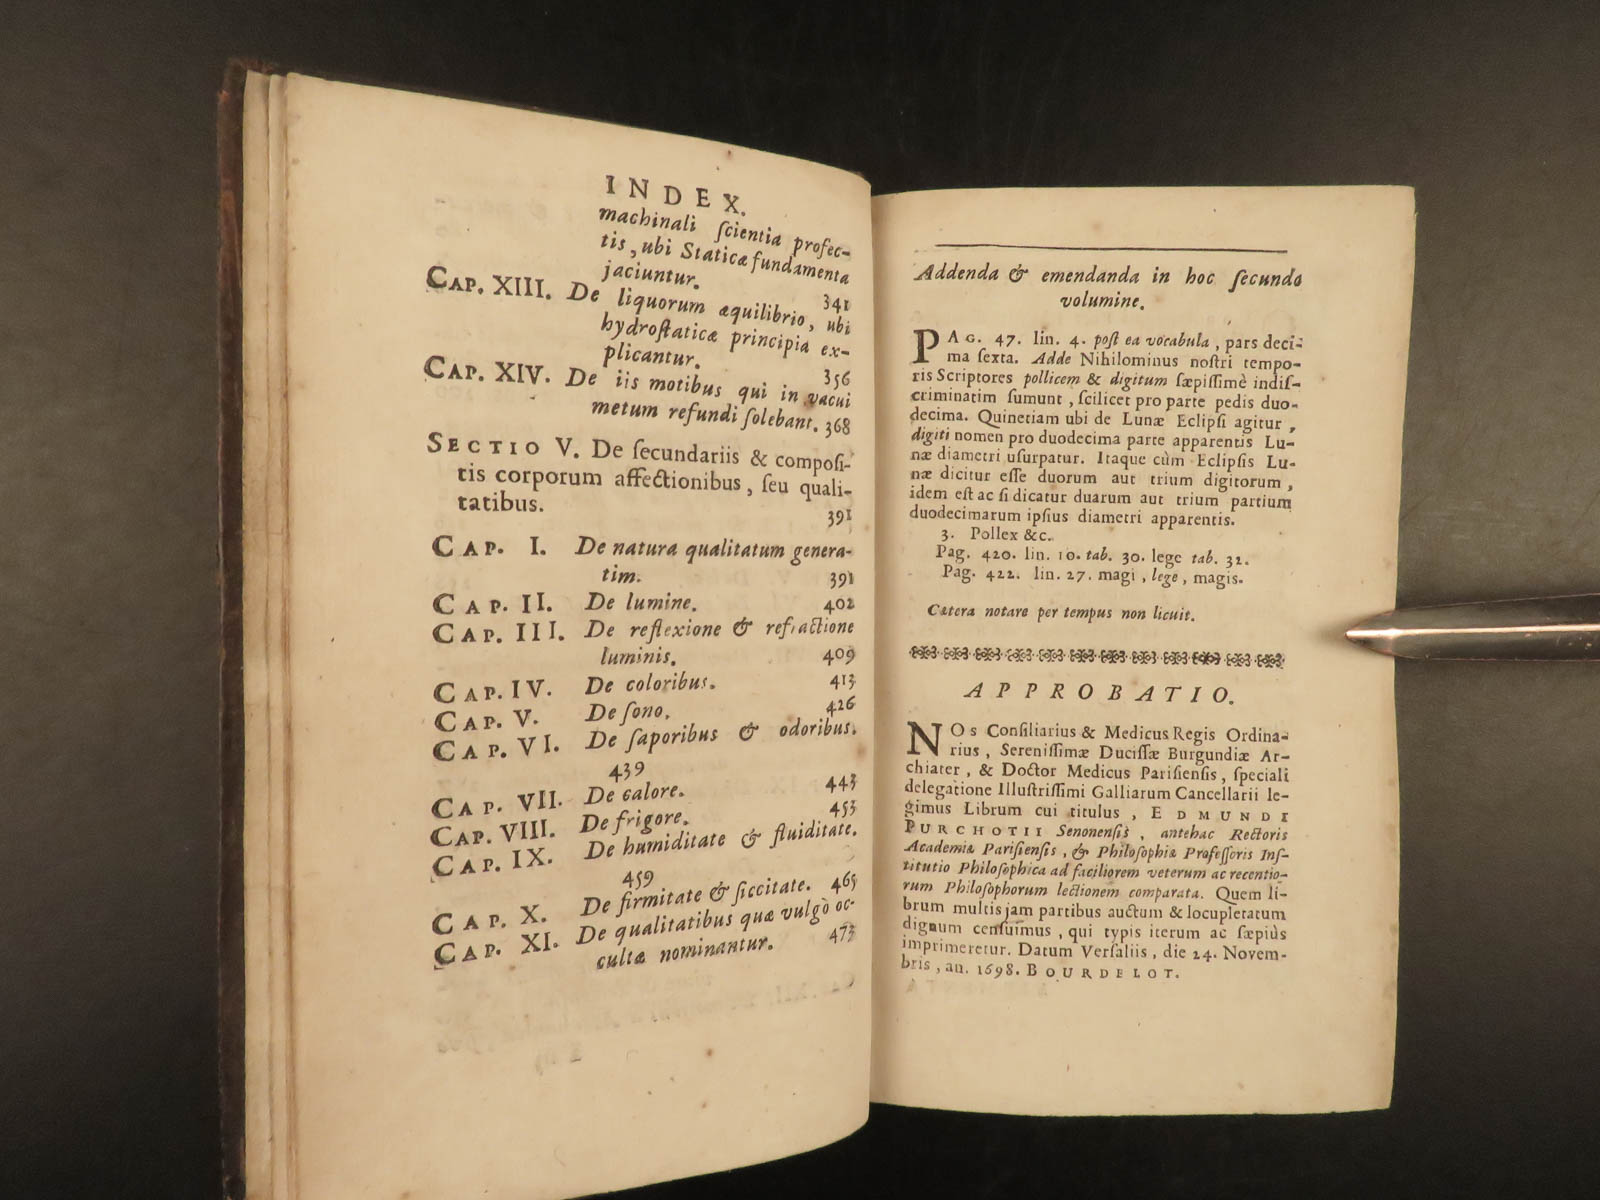 INDEX.
machinali ſcientia profec-
tis, ubi Staticæ fundamenta
jaciuntur. 341
CAP. XIII. De liquorum æquilibrio, ubi
hydroſtaticæ principia ex-
plicantur. 356
CAP. XIV. De iis motibus qui in vacui
metum refundi ſolebant. 368
SECTIO V. De ſecundariis & compoſi-
tis corporum affectionibus, ſeu quali-
tatibus. 391
CAP. I. De natura qualitatum genera-
tim. 391
CAP. II. De lumine. 402
CAP. III. De reflexione & refractione
luminis. 409
CAP. IV. De coloribus. 413
CAP. V. De ſono. 426
CAP. VI. De ſaporibus & odoribus.
439
CAP. VII. De calore. 443
CAP. VIII. De frigore. 453
CAP. IX. De humiditate & fluiditate.
459
CAP. X. De firmitate & ſiccitate. 465
CAP. XI. De qualitatibus quæ vulgò oc-
cultæ nominantur. 473
Addenda & emendanda in hoc ſecundo
volumine.
PAG. 47. lin. 4. poſt ea vocabula, pars deci-
ma ſexta. Adde Nihilominus noſtri tempo-
ris Scriptores pollicem & digitum ſæpiſſimè indiſ-
criminatim ſumunt, ſcilicet pro parte pedis duo-
decima. Quinetiam ubi de Lunæ Eclipſi agitur,
digiti nomen pro duodecima parte apparentis Lu-
næ diametri uſurpatur. Itaque cùm Eclipſis Lu-
næ dicitur eſſe duorum aut trium digitorum,
idem eſt ac ſi dicatur duarum aut trium partium
duodecimarum ipſius diametri apparentis.
3. Pollex &c.
Pag. 420. lin. 10. tab. 30. lege tab. 32.
Pag. 422. lin. 27. magi, lege, magis.
Cætera notare per tempus non licuit.
APPROBATIO.
NOs Conſiliarius & Medicus Regis Ordina-
rius, Sereniſſimæ Duciſſæ Burgundiæ Ar-
chiater, & Doctor Medicus Pariſienſis, ſpeciali
delegatione Illuſtriſſimi Galliarum Cancellarii le-
gimus Librum cui titulus, EDMUNDI
PURCHOTII Senonenſis, antehac Rectoris
Academiæ Pariſienſis, & Philoſophiæ Profeſſoris Inſ-
titutio Philoſophica ad faciliorem veterum ac recentio-
rum Philoſophorum lectionem comparata. Quem li-
brum multis jam partibus auctum & locupletatum
dignum cenſuimus, qui typis iterum ac ſæpiùs
imprimeretur. Datum Verſaliis, die 24. Novem-
bris, an. 1698. BOURDELOT.